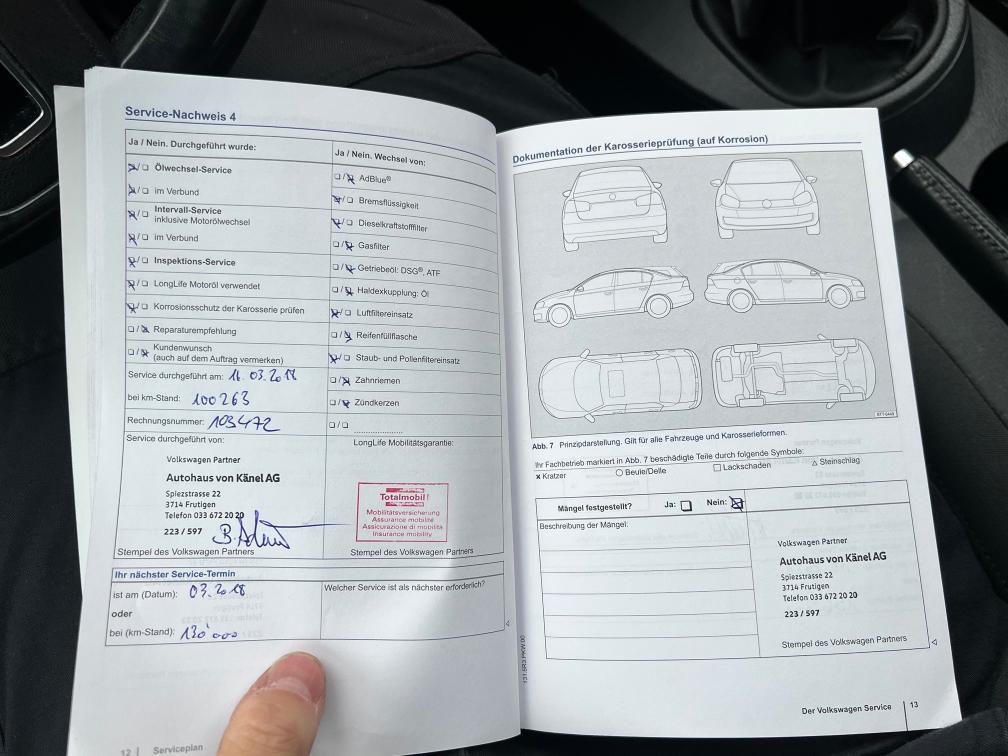 Service-Nachweis 4
Ja / Nein. Durchgeführt wurde:
Ölwechsel-Service
im Verbund
Intervall-Service
inklusive Motorölwechsel
im Verbund
Inspektions-Service
LongLife Motoröl verwendet
Korrosionsschutz der Karosserie prüfen
Reparaturempfehlung
Kundenwunsch
(auch auf dem Auftrag vermerken)
Service durchgeführt am: 16.03.2017
bei km-Stand: 100263
Rechnungsnummer: 103472
Service durchgeführt von:
Volkswagen Partner
Autohaus von Känel AG
Spiezstrasse 22
3714 Frutigen
Telefon 033 672 20 20
223 / 597
Stempel des Volkswagen Partners
Ja / Nein. Wechsel von:
AdBlue®
Bremsflüssigkeit
Dieselkraftstofffilter
Gasfilter
Getriebeöl: DSG®, ATF
Haldexkupplung: Öl
Luftfiltereinsatz
Reifenfüllflasche
Staub- und Pollenfiltereinsatz
Zahnriemen
Zündkerzen
LongLife Mobilitätsgarantie:
Totalmobil!
Mobilitätsversicherung
Assurance mobilité
Assicurazione di mobilità
Insurance mobility
Stempel des Volkswagen Partners
Ihr nächster Service-Termin
ist am (Datum): 03.2018
oder
bei (km-Stand): 130'000
Welcher Service ist als nächster erforderlich?
12 | Serviceplan
Dokumentation der Karosserieprüfung (auf Korrosion)
Abb. 7 Prinzipdarstellung. Gilt für alle Fahrzeuge und Karosserieformen.
Ihr Fachbetrieb markiert in Abb. 7 beschädigte Teile durch folgende Symbole:
× Kratzer ○ Beule/Delle □ Lackschaden △ Steinschlag
Mängel festgestellt? Ja: Nein:
Beschreibung der Mängel:
Volkswagen Partner
Autohaus von Känel AG
Spiezstrasse 22
3714 Frutigen
Telefon 033 672 20 20
223 / 597
Stempel des Volkswagen Partners
131.5R3.PKW.00
Der Volkswagen Service | 13